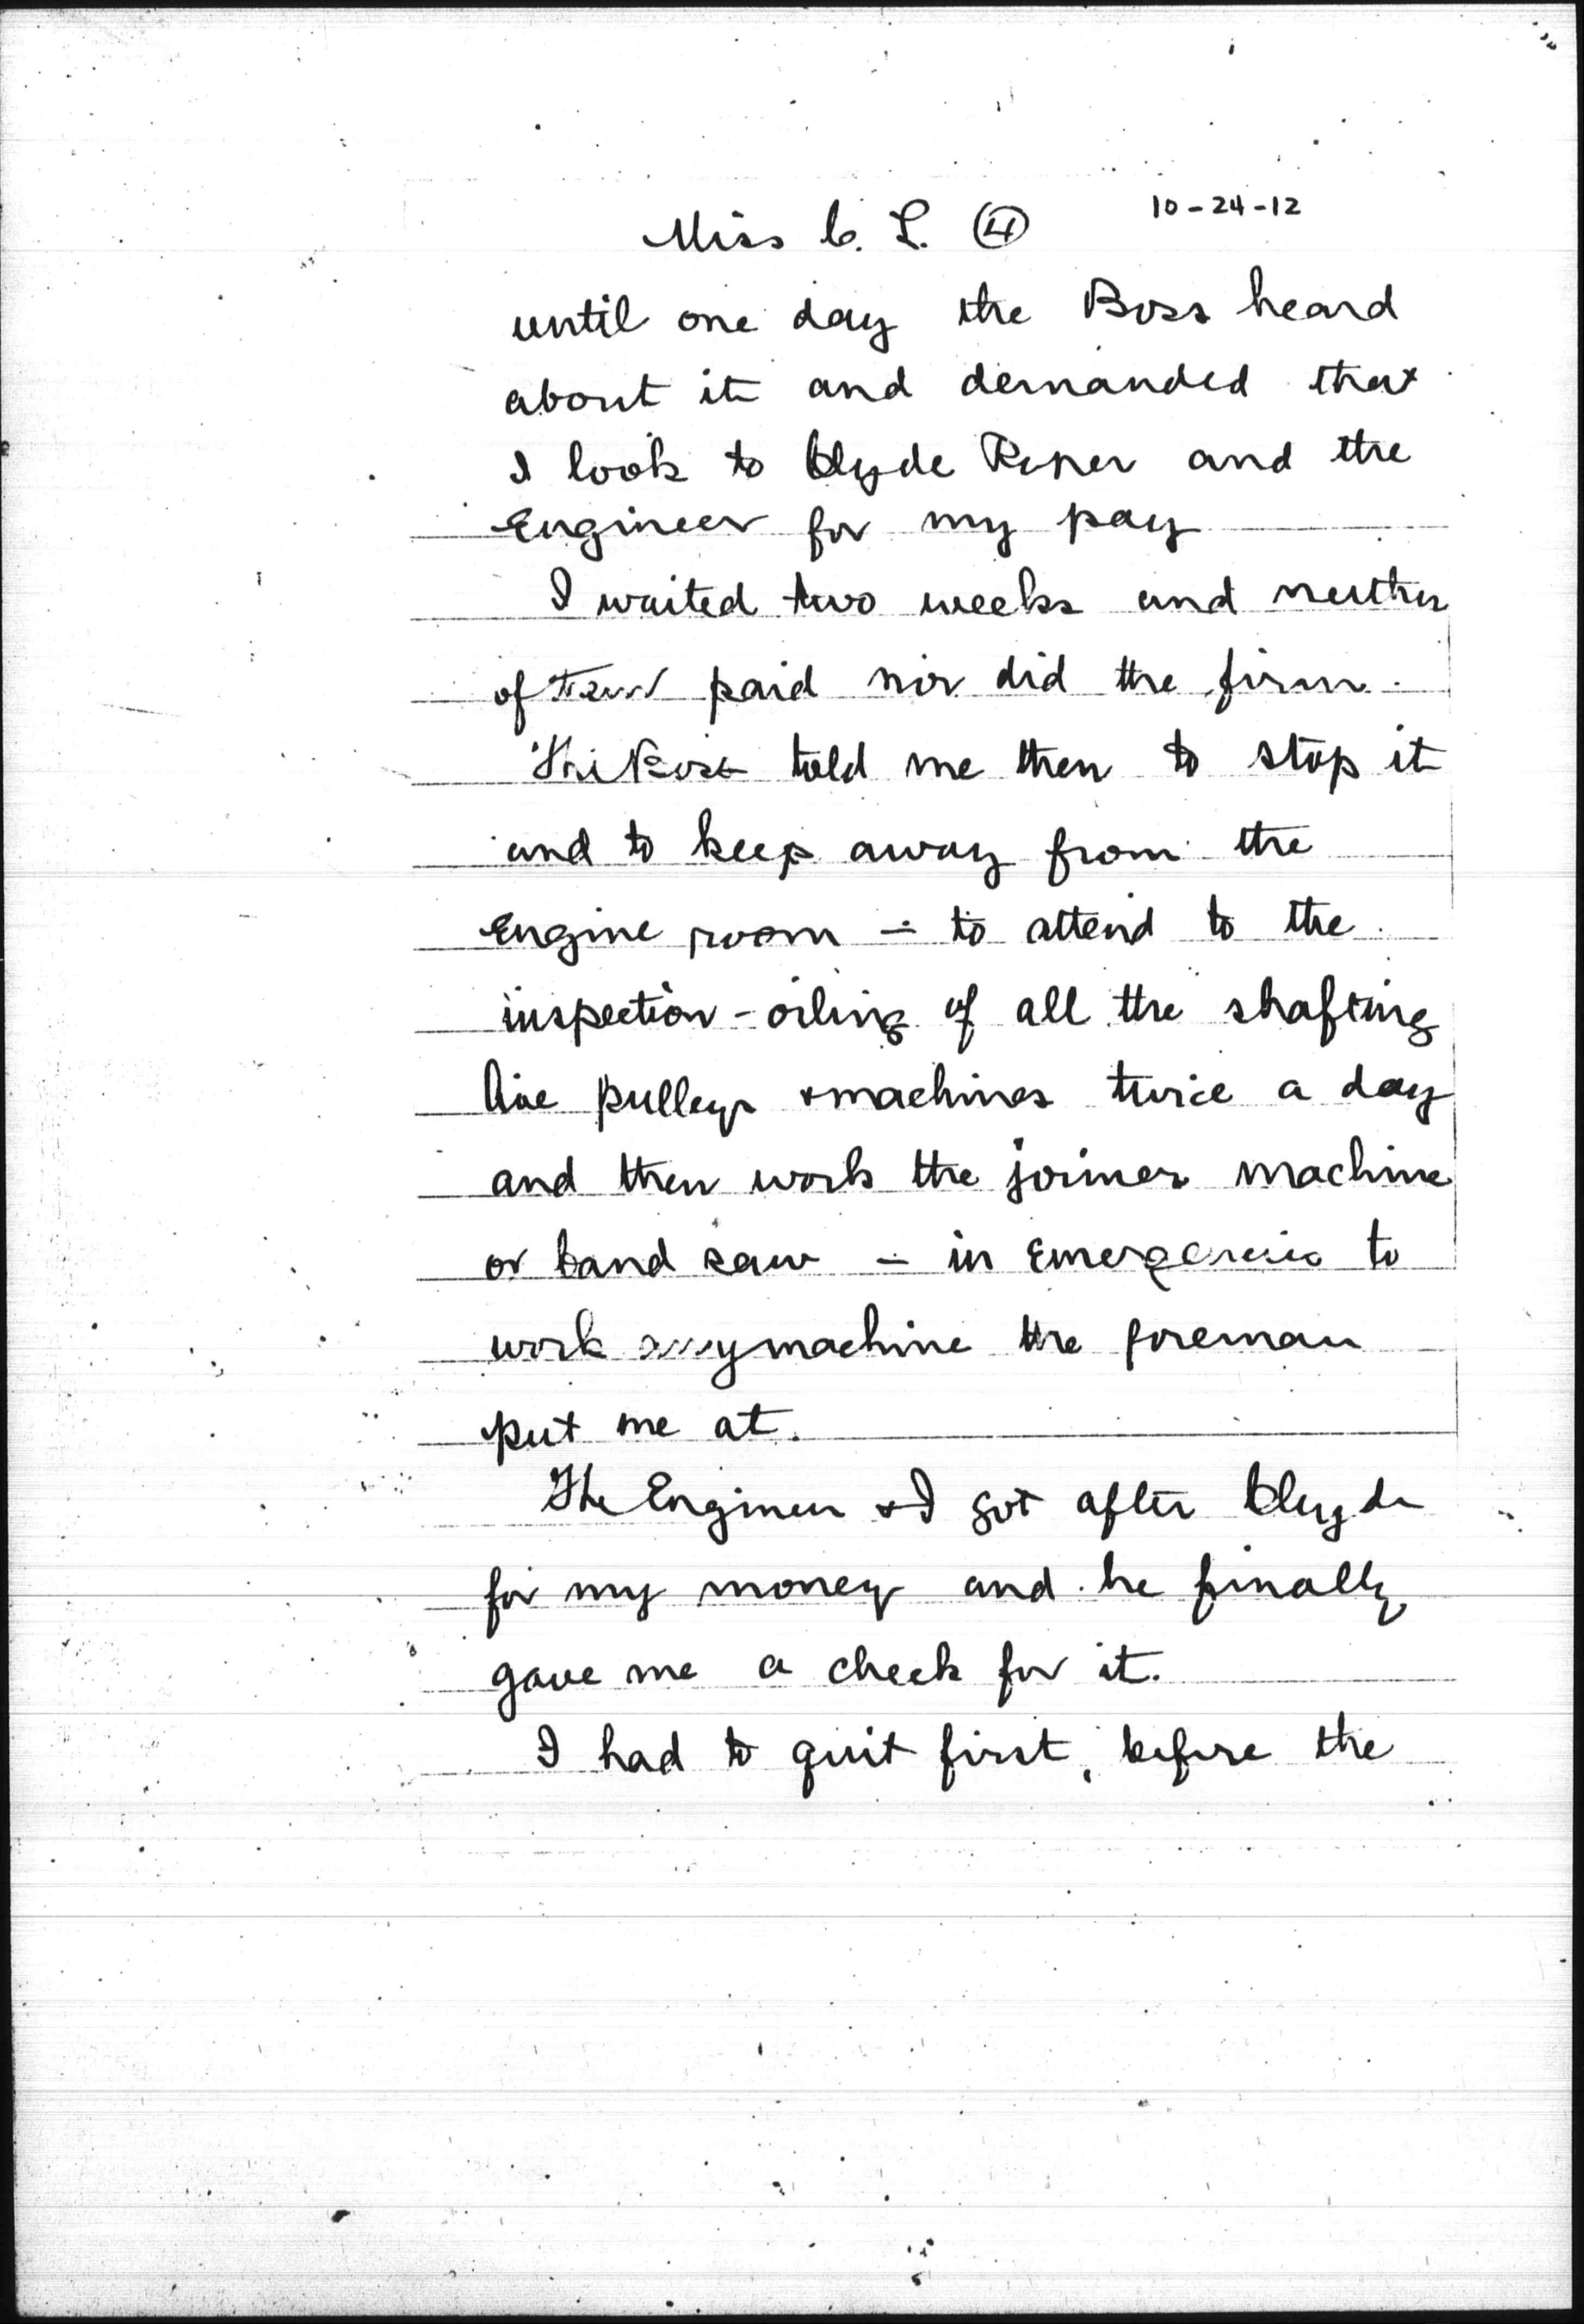 Miss C. L. ④ 10-24-12
until one day the Boss heard
about it and demanded that
I look to Clyde and the
Engineer for my pay
I waited two weeks and neither
of them paid nor did the firm.
The Boss told me then to stop it
and to keep away from the
Engine room - to attend to the
inspection - oiling of all the shafting
live pulleys & machines twice a day
and then work the joiner machine
or band saw - in Emergencies to
work any machine the foreman
put me at.
The Engineer & I got after Clyde
for my money and he finally
gave me a check for it.
I had to quit first, before the